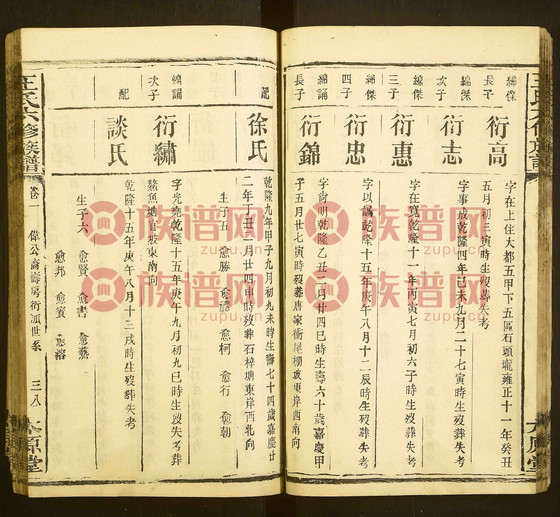 綿傑
長子
衍高
字在上住大都五甲下五區石頭壠雍正十一年癸丑
五月初三寅時生歿葬失考
綿傑
次子
衍志
字事成乾隆四年己未九月二十七寅時生歿葬失考
綿傑
三子
衍惠
字在寬乾隆十一年丙寅七月初六子時生歿葬失考
綿傑
四子
衍忠
字以隅乾隆十五年庚午八月十一辰時生歿葬失考
綿誦
長子
衍錦
字尚明乾隆乙丑二月廿四巳時生壽六十歲嘉慶甲
子五月廿七寅時歿葬唐家衝尾棚坡東岸酉南向
配
徐氏
乾隆九年甲子九月初九未時生壽七十四歲嘉慶廿
二年丁丑三月廿四申時歿葬石梓塘東岸西北向
生子五 愈勝 愈 愈柯 愈行 愈朝
綿誦
次子
衍繡
字先堯乾隆十五年庚午九月初九巳時生歿失考葬
鰲魚塘官坡東南向
配
談氏
乾隆十五年庚午八月十三戌時生歿葬失考
生子六 愈賢 愈書 愈藝
愈邦 愈賓 愈容
王氏六修族譜
卷一
偉公裔壽房衍派世系
三八
太原堂
族谱网
ZUPU.CN